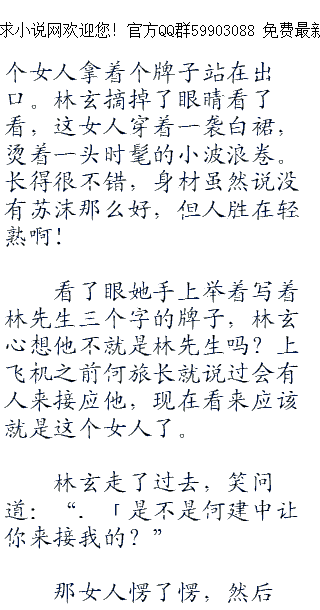 求小说网欢迎您！官方QQ群59903088 免费最新
个女人拿着个牌子站在出
口。林玄摘掉了眼睛看了
看，这女人穿着一袭白裙，
烫着一头时髦的小波浪卷。
长得很不错，身材虽然说没
有苏沫那么好，但人胜在轻
熟啊！
看了眼她手上举着写着
林先生三个字的牌子，林玄
心想他不就是林先生吗？上
飞机之前何旅长就说过会有
人来接应他，现在看来应该
就是这个女人了。
林玄走了过去，笑问
道：“．「是不是何建中让
你来接我的？”
那女人愣了愣，然后